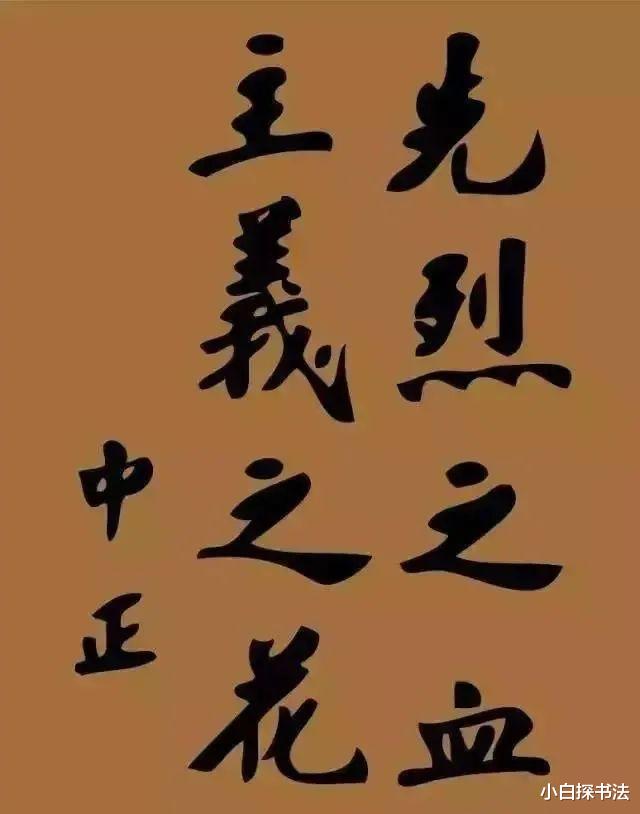 先烈之血
主義之花
中正
小白探书法